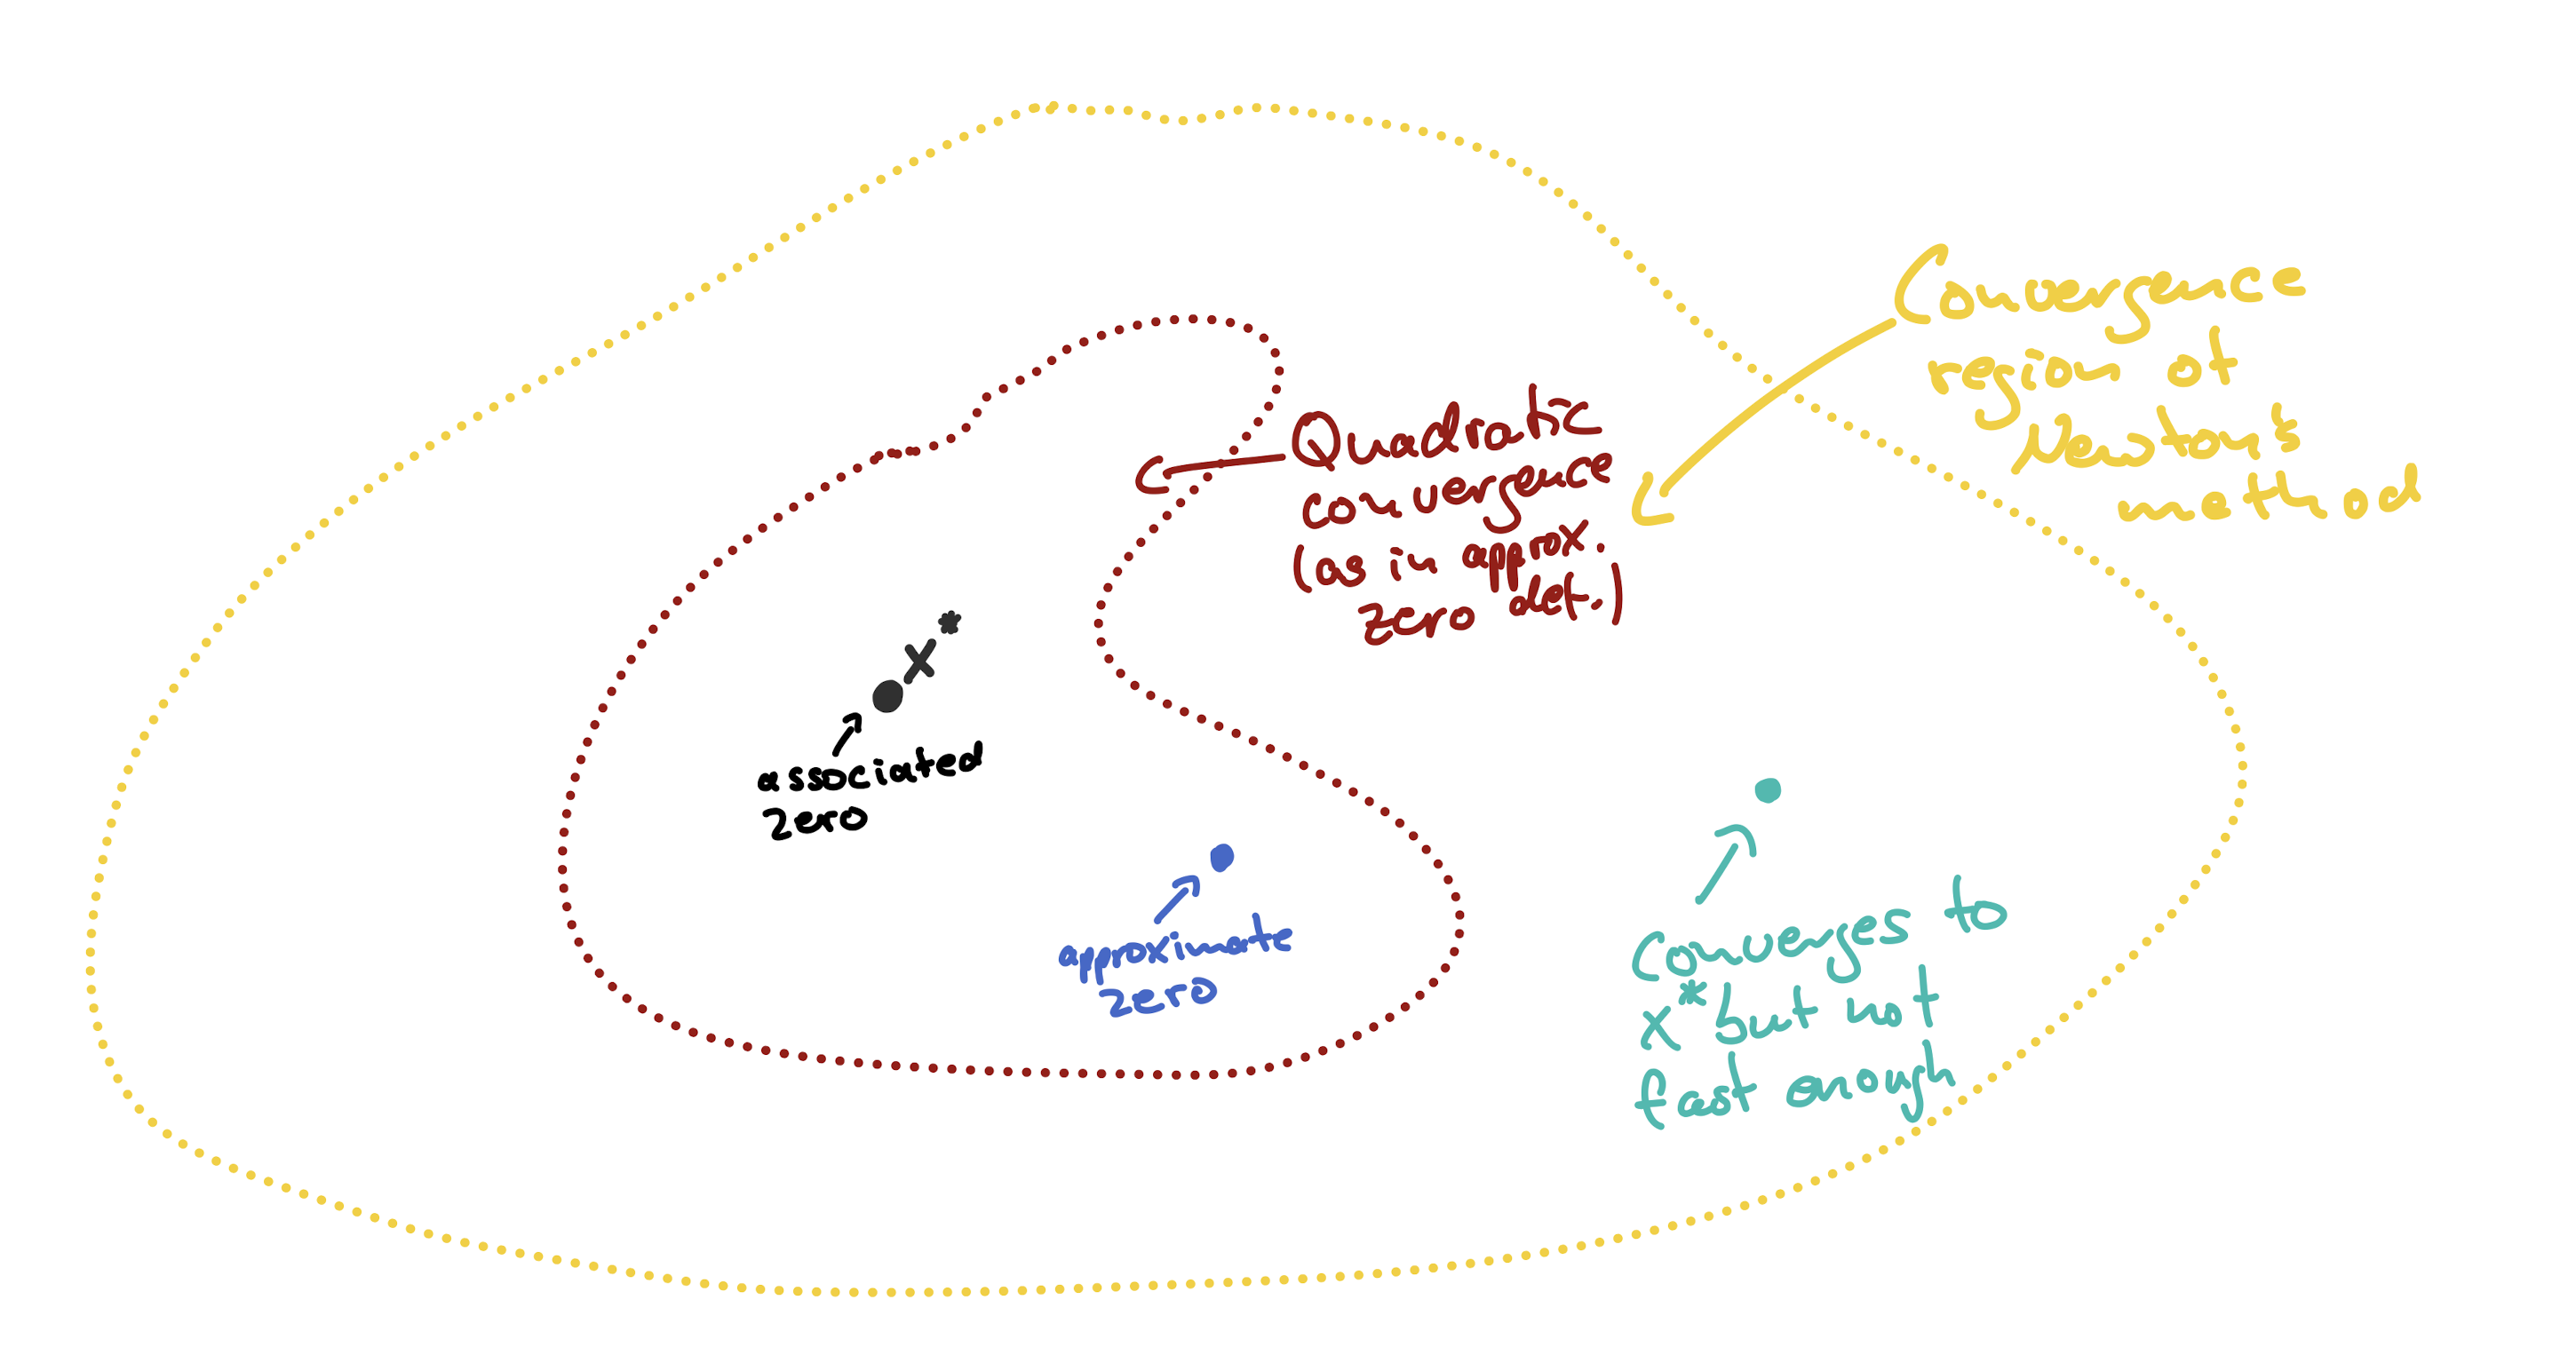 Convergence
region of
Newton's
method
Quadratic
convergence
(as in approx.
zero def.)
x*
associated
zero
approximate
zero
Converges to
x* but not
fast enough